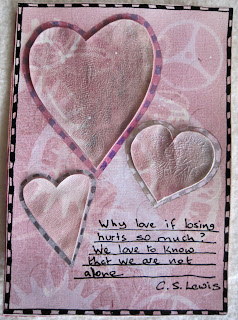 Why love if losing
hurts so much?
We love to know
that we are not
alone
C.S. Lewis